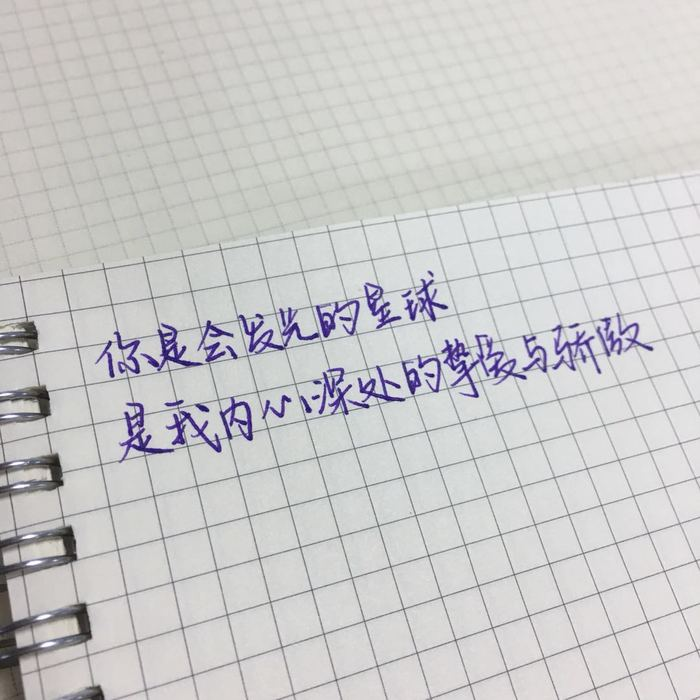 你是会发光的星球
是我内心深处的挚爱与骄傲